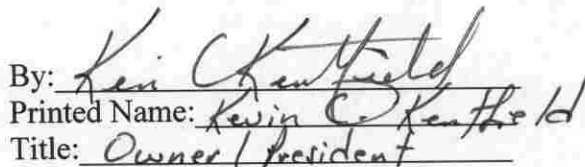 By: Ken C Kentfield
Printed Name: Kevin C Kentfield
Title: Owner / President